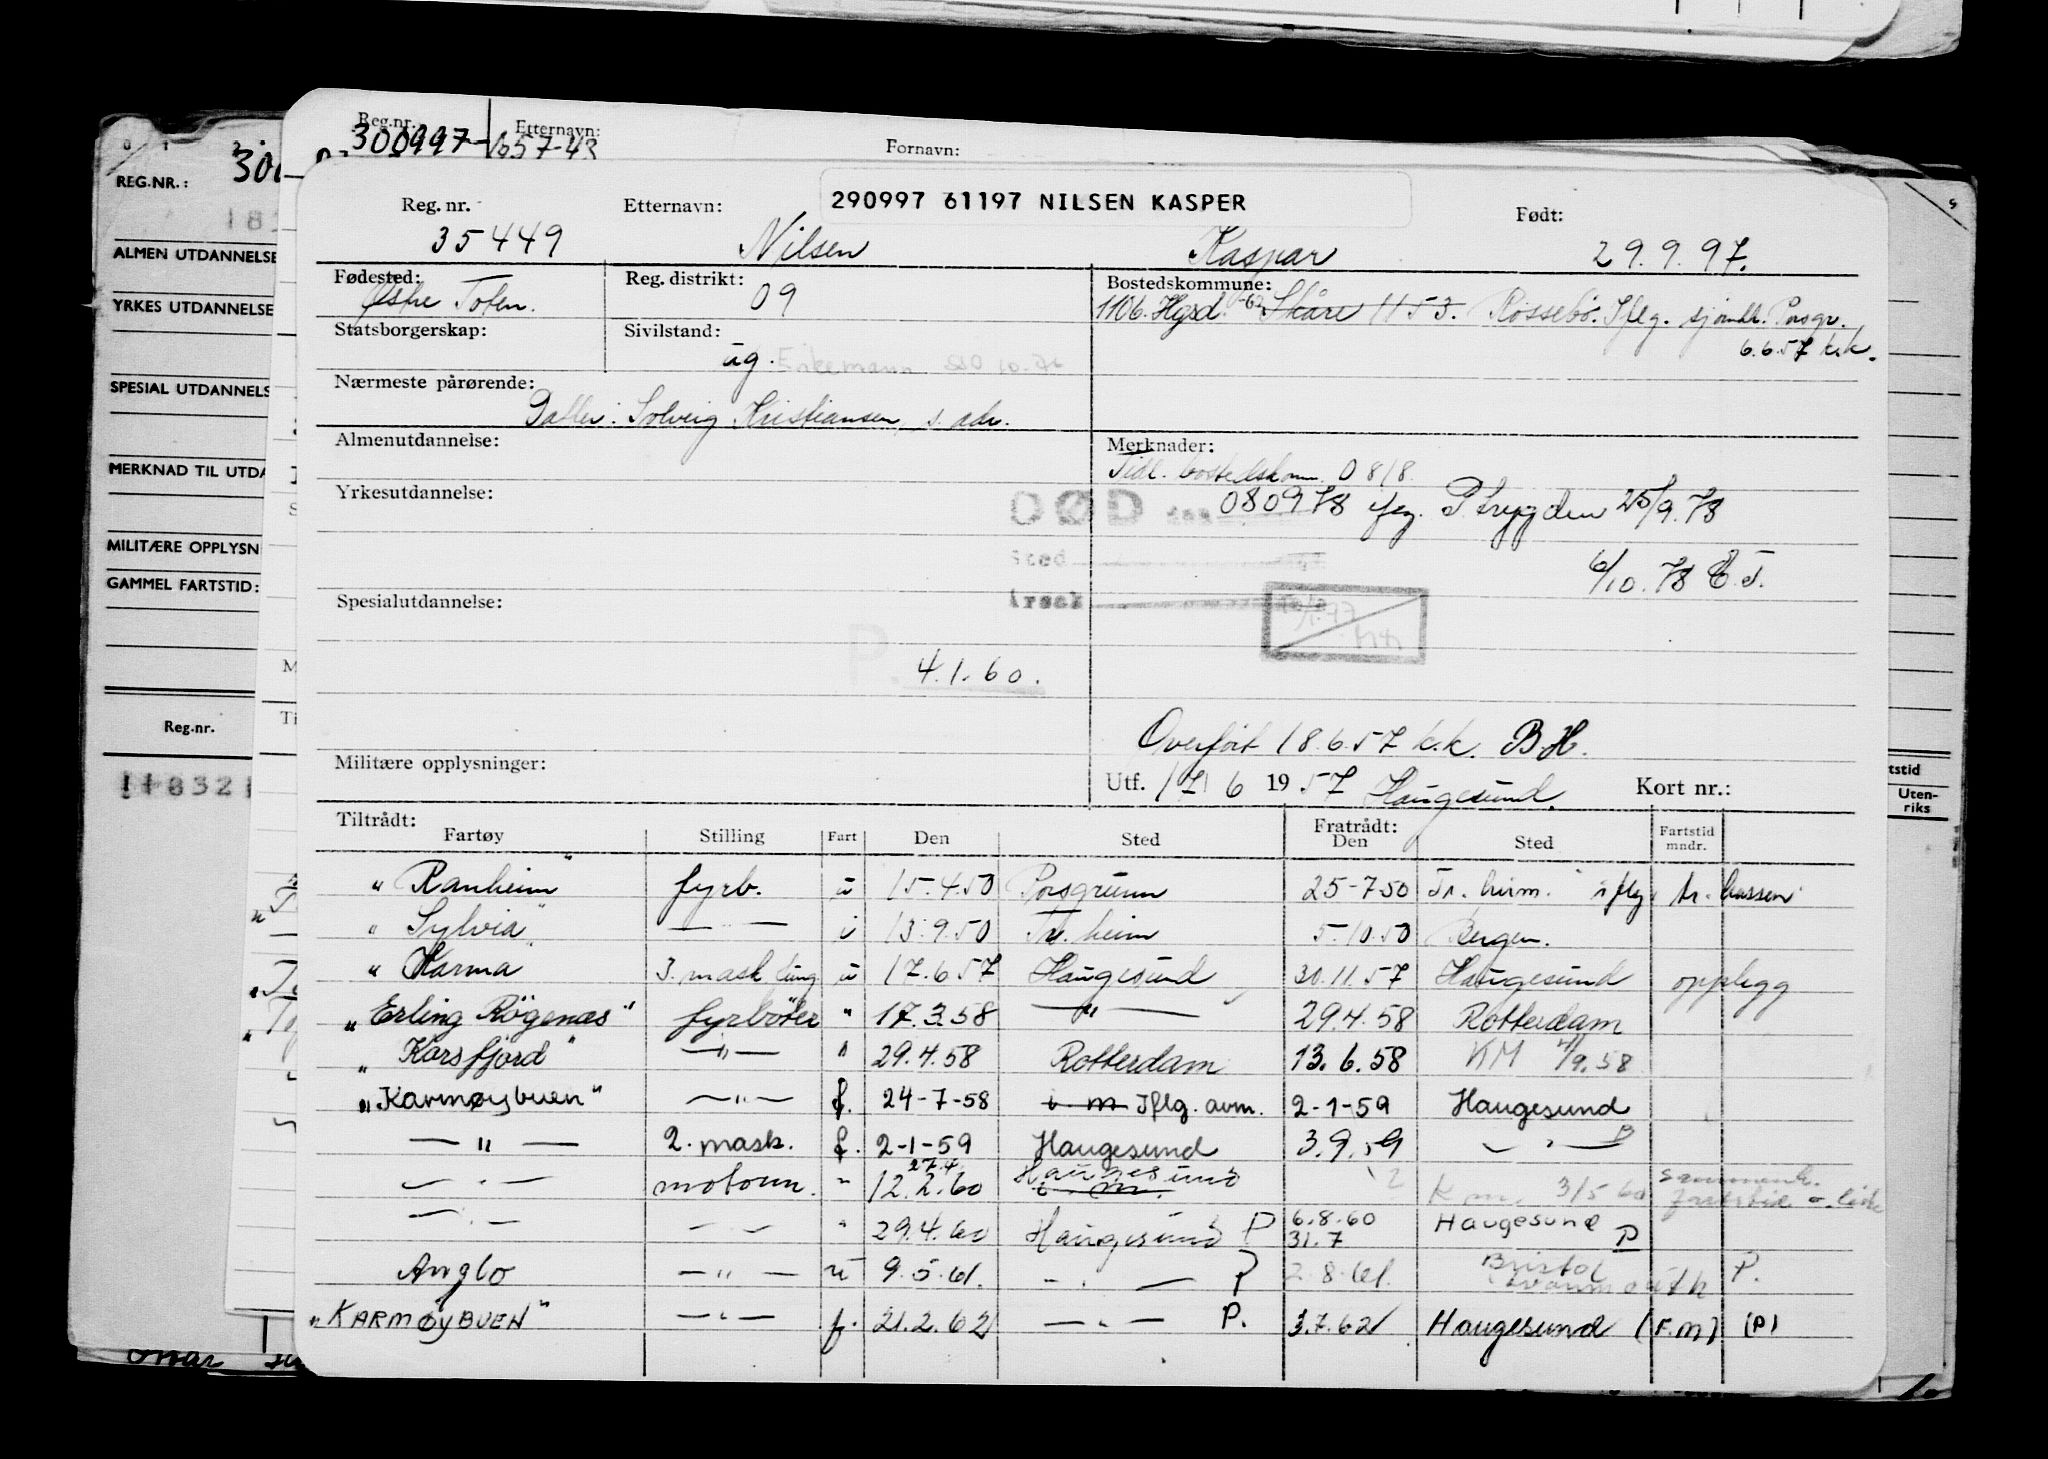 Reg.nr. Etternavn: Fornavn:
300997-
REG.NR.:
290997 61197 NILSEN KASPER
Reg. nr. Etternavn: Født:
35449 Nilsen Kaspar 29.9.97.
Fødested: Reg. distrikt: Bostedskommune:
Østre Toten. 09 1106. Hgsd. -62 Skåre 1153. Rossebø. Iflg. sjømdl. Porsgr.
6.6.57 k.k.
Statsborgerskap: Sivilstand:
ug. Enkemann 10.76
Nærmeste pårørende:
Datter: Solveig Kristiansen, s. adr.
Almenutdannelse: Merknader:
Tidl. bostedskomm. 0818.
Yrkesutdannelse:
DØD den 080978 iføg. P.trygden 25/9.78
Sted
6/10.78 E.T.
Årsak
Spesialutdannelse:
P. 4.1.60.
Overført 18.6.57 k.k. B.H.
Militære opplysninger: Utf. 17/6 1957 Haugesund. Kort nr.:
Tiltrådt: Fratrådt:
Fartøy Stilling Fart Den Sted Den Sted Fartstid mndr.
" Ranheim" fyrb. u 15.4.50 Porsgrunn 25-7-50 Tr. heim. iflg. tr. bassen
" Sylvia" — " — i 13.9.50 Tr. heim 5.10.50 Bergen.
" Karma" 3. mask u 17.6.57 Haugesund 30.11.57 Haugesund opplegg
"Erling Røgenæs" fyrbøter " 17.3.58 — " — 29.4.58 Rotterdam
" Korsfjord" — " — " 29.4.58 Rotterdam 13.6.58 KM 4/9.58
"Karmøybuen" — " — f. 24-7-58 i m Iflg. avm. 2-1-59 Haugesund
— " — 2. mask. f. 2-1-59 Haugesund 3.9.59 — " — P
— " — motorm. " 27.4. 12.2.60 Haugesund i. m. K m. 3/5 60 sammenh. fartstid
— " — — " — " 29.4.60 Haugesund P 6.8.60 31.7 Haugesund P
Anglo — " — u 9.5.61. — " — P 2.8.61. Bristol P.
"KARMØYBUEN" — " — f. 21.2.62 — " — P. 3.7.62 Haugesund (F.M) (P)
ALMEN UTDANNELSE
YRKES UTDANNELSE
SPESIAL UTDANNELS
MERKNAD TIL UTDA
MILITÆRE OPPLYSN
GAMMEL FARTSTID:
Reg.nr.
tstid
Uten-
riks